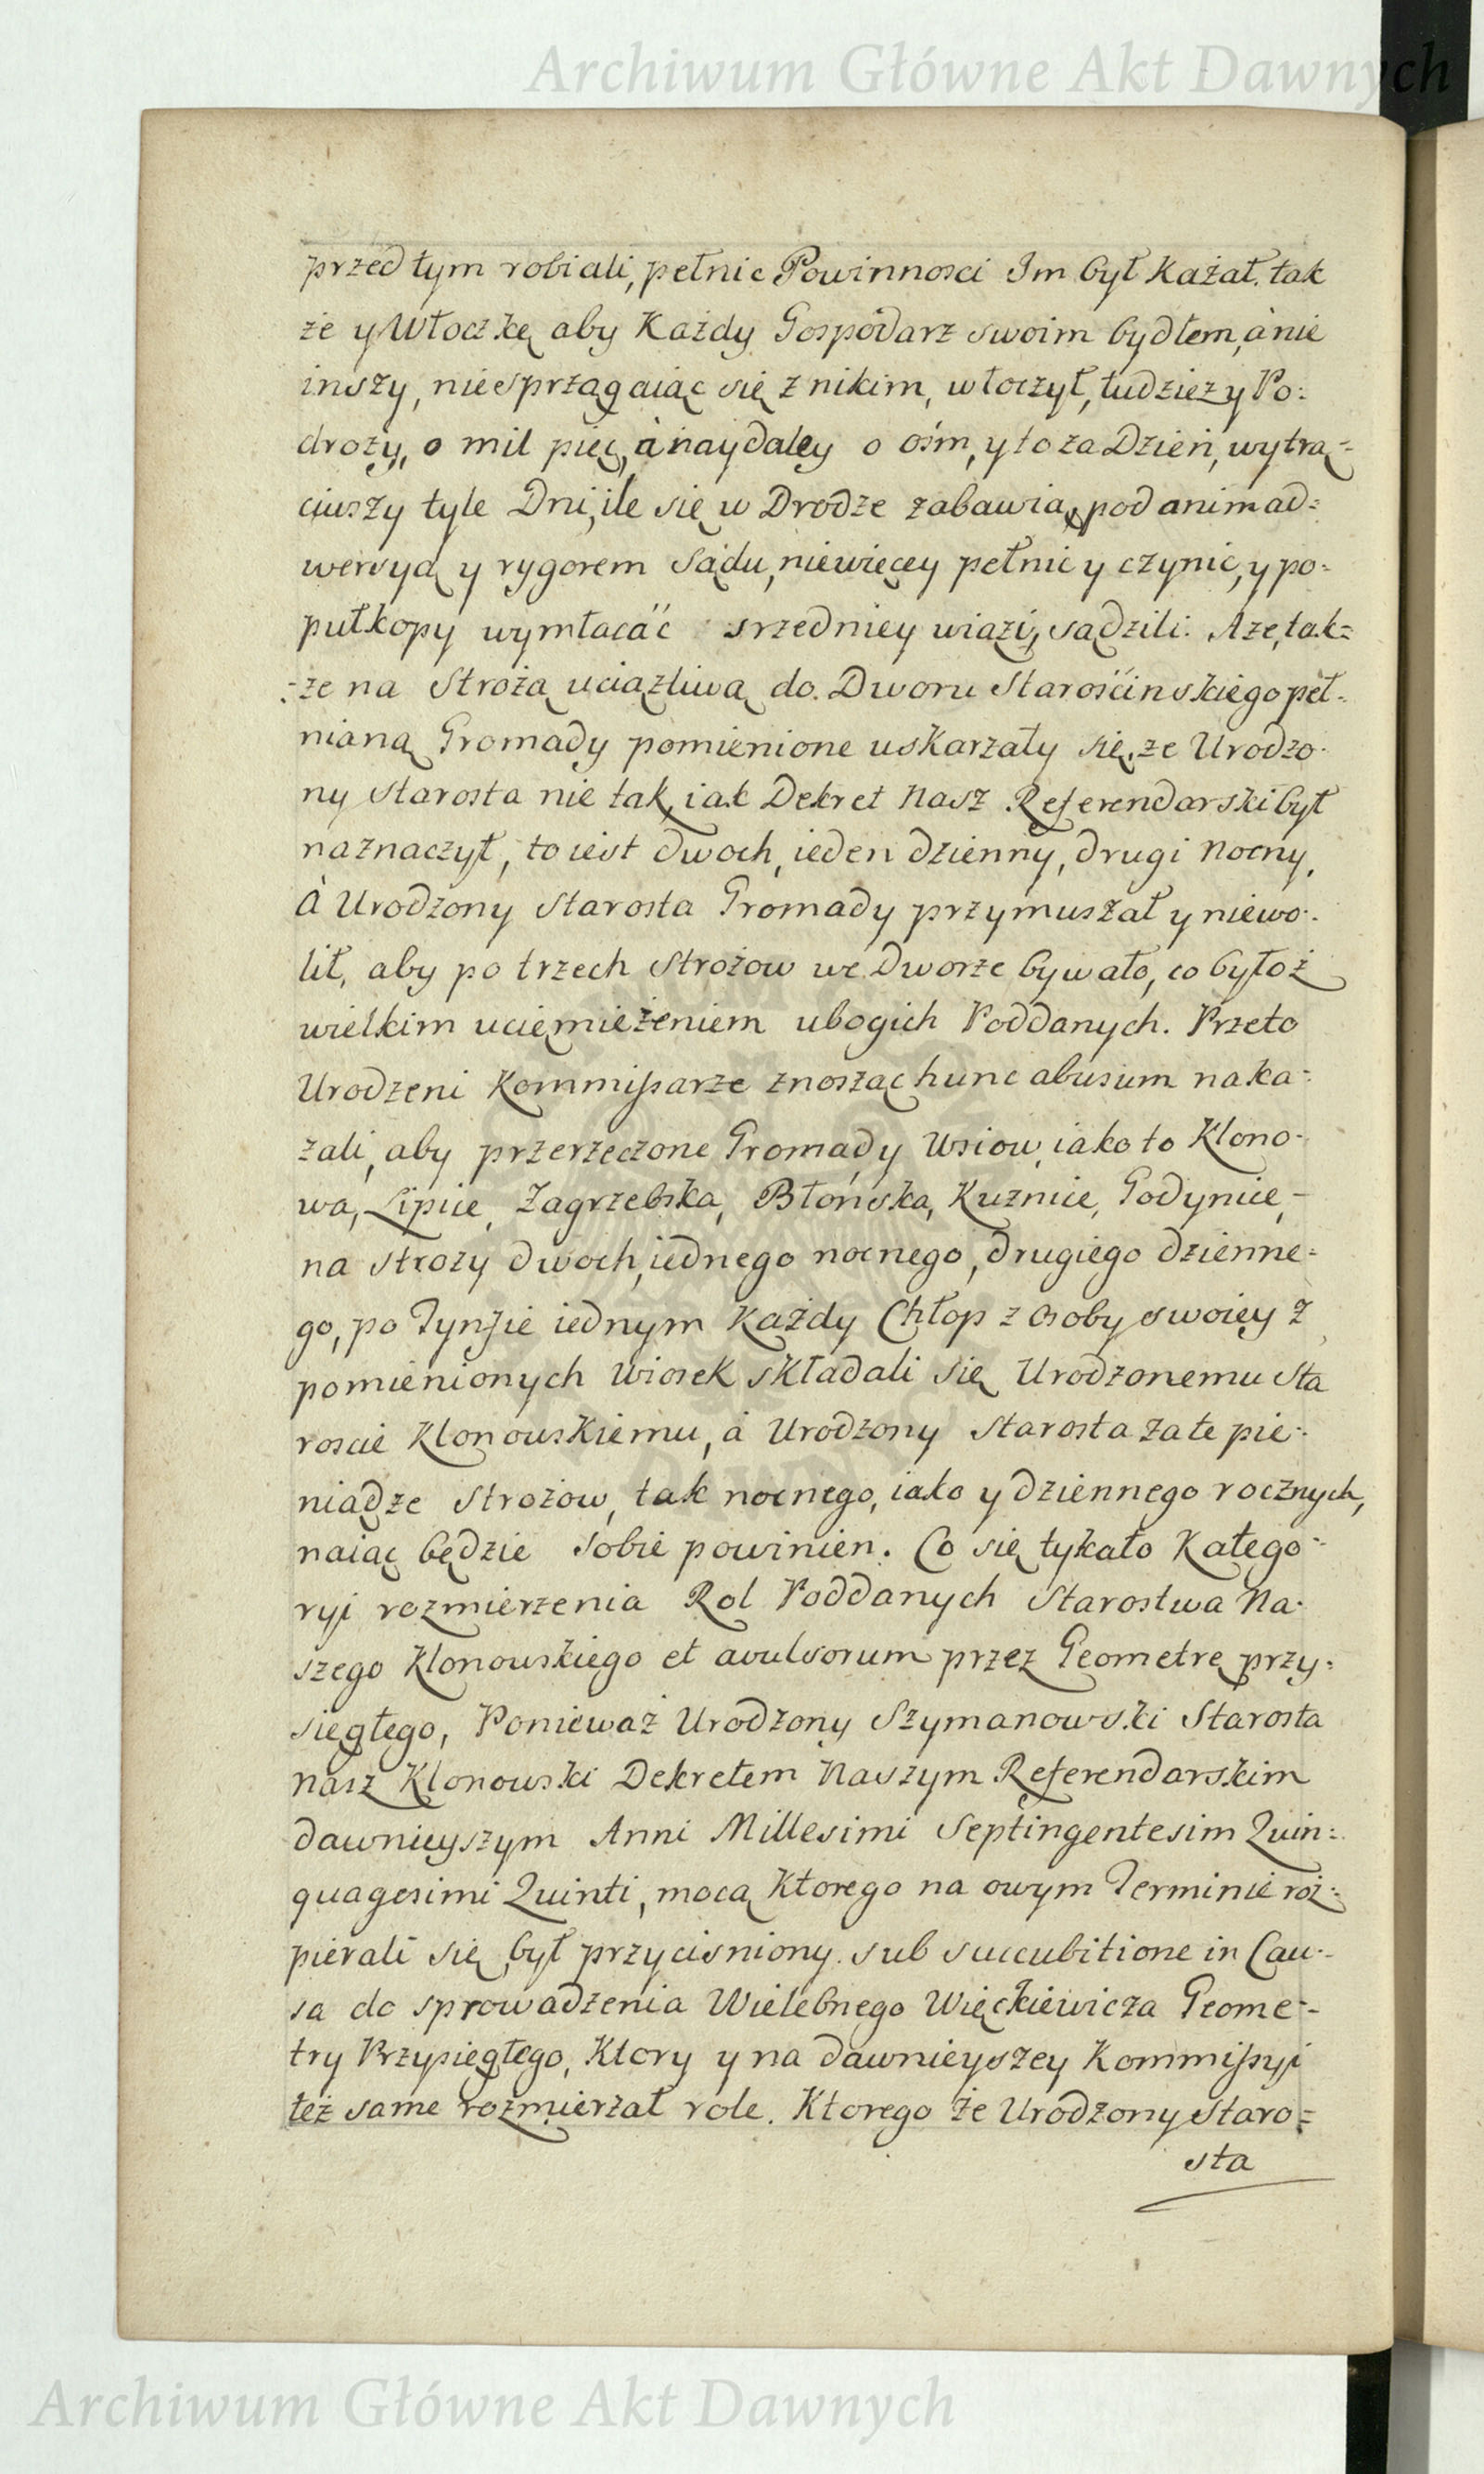 Archiwum Główne Akt Dawnych
przed tym robiali, pełnic Powinnosci Im był Kazał. tak
że y Włoczkę aby Każdy Gospodarz swoim bydłem, à nie
inszy, niesprzągaiąc się z nikim, włoczył, tudziez y Po:
drozy, o mil pięć, à naydaley o ośm, y to za Dzień, wytrą=
ciwszy tyle Dni, ile się w Drodze zabawią, pod animad:
wersyą y rygorem Sądu, niewięcey pełnic y czynic, y po:
pułkopy wymłacać srzedniey wiązi, sądzili. A ze, tak=
:ze na Strożą uciązliwą do Dworu Starościnskiego peł-
nianą Gromady pomienione uskarzały się, ze Urodzo-
ny Starosta nie tak, iak Dekret Nasz Referendarski był
naznaczył, to iest dwoch, ieden dzienny, drugi nocny,
à Urodzony Starosta Gromady przymuszał y niewo-
lił, aby po trzech Strożow we Dworze bywało, co było z
wielkim uciemiężeniem ubogich Poddanych. Przeto
Urodzeni Kommissarze znosząc hunc abusum naka-
zali, aby przerzeczone Gromady Wsiow, iako to Klono-
wa, Lipice, Zagrzebska, Błońska, Kuznice, Godynice,-
na strozy dwoch, iednego nocnego, drugiego dzienne=
go, po Tynfie iednym Każdy Chłop z Osoby swoiey z
pomienionych Wiosek składali się Urodzonemu Sta
roscie Klonowskiemu, à Urodzony Starosta za te pie-
niądze Strożow, tak nocnego, iako y dziennego rocznych,
naiąc będzie sobie powinien. Co się tykało Katego-
ryi rozmierzenia Rol Poddanych Starostwa Na-
szego Klonowskiego et avulsorum przez Geometrę przy:
sięgłego, Ponieważ Urodzony Szymanowski Starosta
nasz Klonowski Dekretem Naszym Referendarskim
dawnieyszym Anni Millesimi Septingentesim Quin:
quagesimi Quinti, mocą Ktorego na owym Terminie roz:
pierali się, był przycisniony sub succubitione in Cau-
sa do sprowadzenia Wielebnego Więckiewicza Geome-
try Przysięgłego, Ktory y na dawnieyszey Kommissyi
też same rozmierzał role. Ktorego że Urodzony Staro=
sta
Archiwum Główne Akt Dawnych